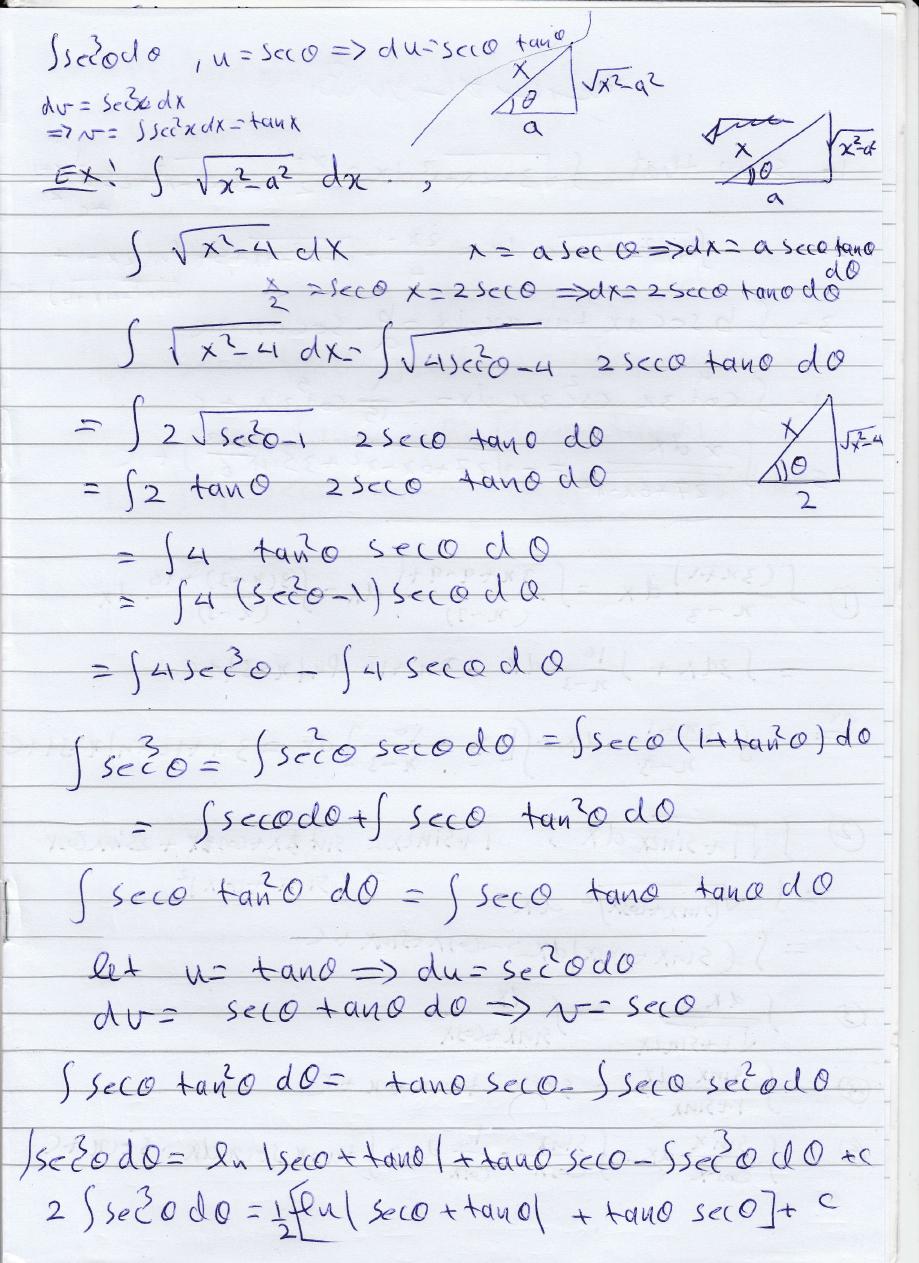 ∫sec³θdθ , u = secθ => du = secθ tanθ
x θ a √x²-a²
dv = sec²x dx
=> v = ∫sec²x dx = tanx
x θ a √x²-a²
Ex! ∫ √x²-a² dx . ,
∫ √x²-4 dx x = a secθ => dx = a secθ tanθ dθ
x/2 = secθ x = 2 secθ => dx = 2 secθ tanθ dθ
∫ √x²-4 dx = ∫ √4sec²θ-4 2 secθ tanθ dθ
= ∫ 2 √sec²θ-1 2 secθ tanθ dθ
x θ 2 √x²-4
= ∫2 tanθ 2 secθ tanθ dθ
= ∫4 tan²θ secθ dθ
= ∫4 (sec²θ-1) secθ dθ
= ∫4 sec³θ - ∫4 secθ dθ
∫ sec³θ = ∫ sec²θ secθ dθ = ∫secθ (1+tan²θ) dθ
= ∫secθdθ + ∫ secθ tan²θ dθ
∫ secθ tan²θ dθ = ∫ secθ tanθ tanθ dθ
let u = tanθ => du = sec²θ dθ
dv = secθ tanθ dθ => v = secθ
∫ secθ tan²θ dθ = tanθ secθ - ∫ secθ sec²θ dθ
∫sec³θ dθ = ln |secθ + tanθ| + tanθ secθ - ∫sec³θ dθ + c
2 ∫sec³θ dθ = 1/2 [ln| secθ + tanθ| + tanθ secθ] + c